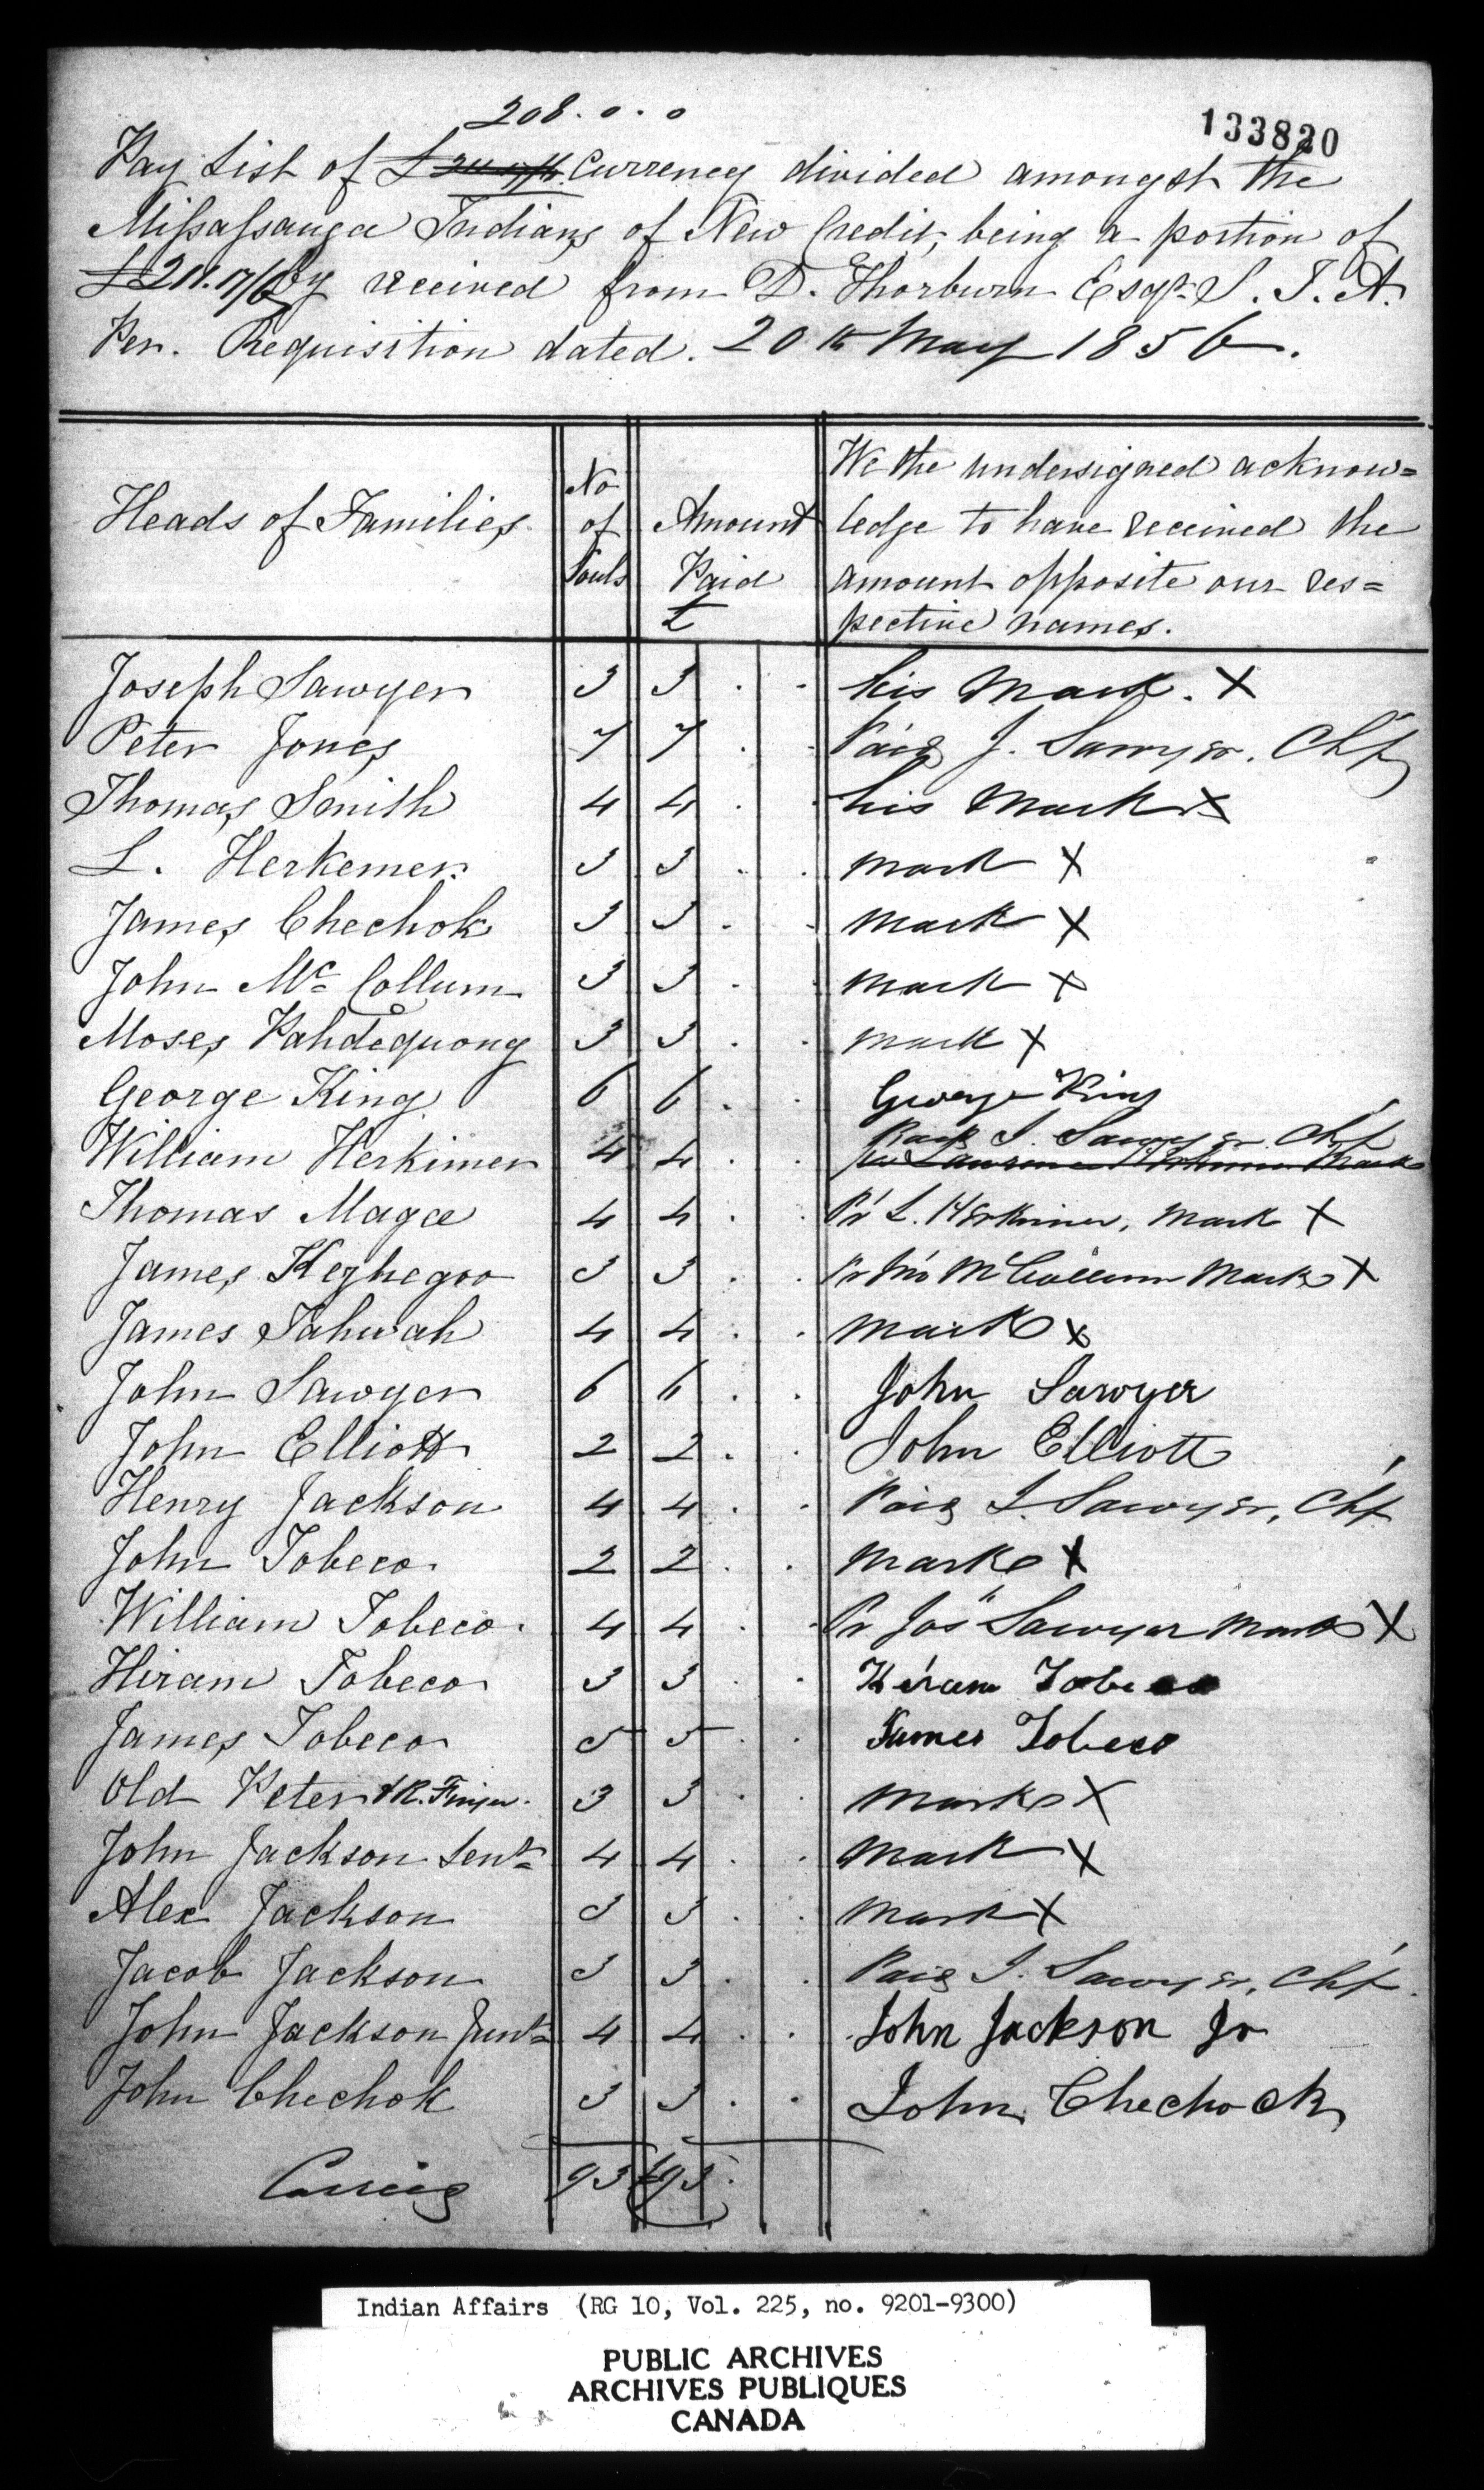 208 . 0 . 0
133820
Pay List of £ 211.17/6 Currency divided amongst the
Missassauga Indians of New Credit, being a portion of
£211.17/6 Cy received from D. Thorburn Esqr. S. I. A.
Per. Requisition dated. 20th May 1856.
Heads of Families
No of Souls
Amount Paid £
We the undersigned acknow=
ledge to have received the
amount opposite our res=
pective names.
Joseph Sawyer 3 3 . . his Mark. X
Peter Jones 7 7 . . Paid J. Sawyer. Chf
Thomas Smith 4 4 . . his Mark X
L. Herkemer 3 3 . . mark X
James Chechok 3 3 . . mark X
John Mc Collum 3 3 . . mark X
Moses Pahdequong 3 3 . . mark X
George King 6 6 . . George King
William Herkimer 4 4 . . Paid J. Sawyer Chf
per Lawrence Herkimer Mark
Thomas Magee 4 4 . . Pr L. Herkimer, mark X
James Kezhegoo 3 3 . . Pr Jno McCollum Mark X
James Tahwah 4 4 . . mark X
John Sawyer 6 6 . . John Sawyer
John Elliott 2 2 . . John Elliott
Henry Jackson 4 4 . . Paid J. Sawyer, Chf
John Tobeco 2 2 . . mark X
William Tobeco 4 4 . . Pr Jos Sawyer mark X
Hiram Tobeco 3 3 . . Hiram Tobeco
James Tobeco 5 5 . . James Tobeco
Old Peter & R. Finger 3 3 . . mark X
John Jackson Senr 4 4 . . mark X
Alex Jackson 3 3 . . mark X
Jacob Jackson 3 3 . . Paid J. Sawyer, Chf.
John Jackson Junr 4 4 . . John Jackson Jr
John Chechok 3 3 . . John Chechock
Carried 93 £93 .
Indian Affairs (RG 10, Vol. 225, no. 9201-9300)
PUBLIC ARCHIVES
ARCHIVES PUBLIQUES
CANADA